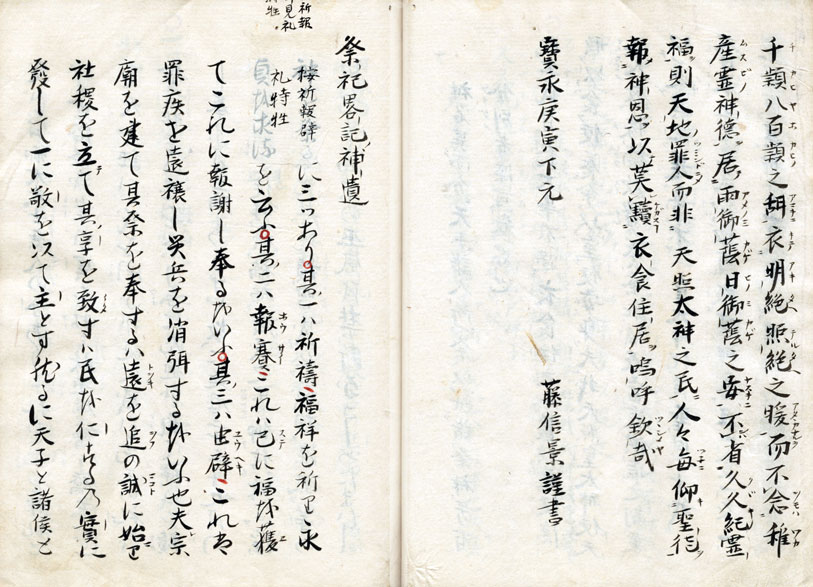 千類八百類之餌衣明絶照絶之暖而不念稚
産霊神徳居雨御蔭日御蔭之安不省久久紀霊
福則天地罪人而非天照太神之民人々毎仰聖
報神恩以 衣食住居嗚呼欽哉
寳永庚寅下元
藤信景謹書
祭祀畧記補遺
祈報
見礼
牲
按祈報辟に三つあり其一ハ祈禱福祥を祈り永
礼特牲
を云ふ其二ハ報賽これハ已に福を獲
てこれに報謝し奉るをいふ其三ハ由辟これハ
罪疾を遠禳し災兵を消弭するをいふ也夫宗
廟を建て其祭を奉するハ遠を追の誠に始り
社稷を立て其享を致すハ民を仁するの實に
發して一に敬を以て主とす然るに天子と諸侯と